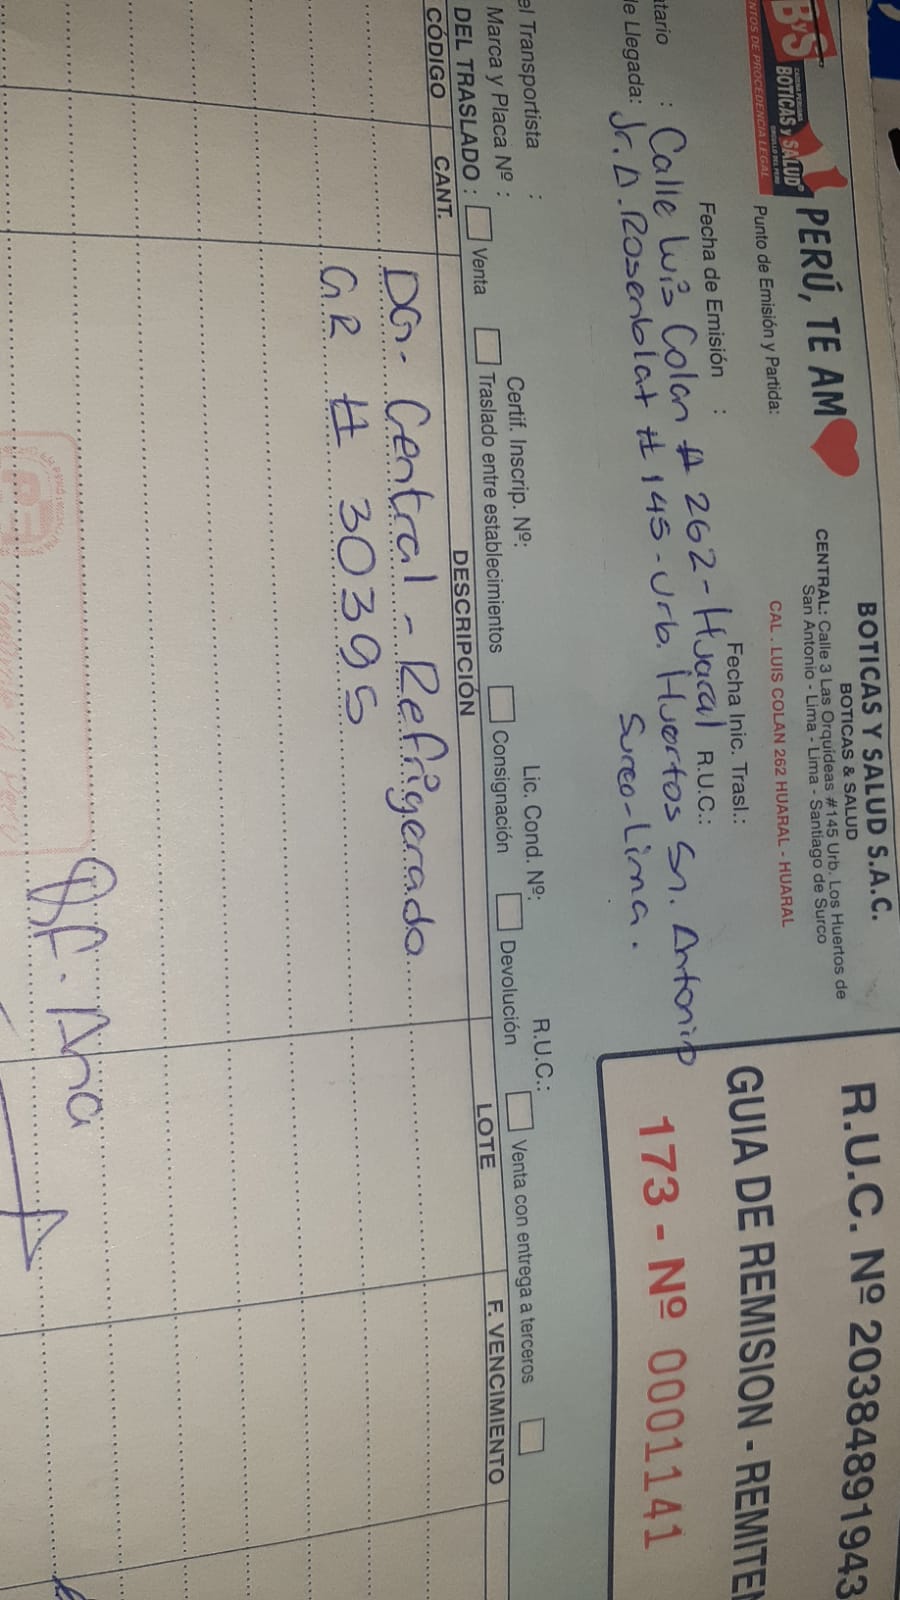 BOTICAS Y SALUD S.A.C.
BOTICAS & SALUD
CENTRAL: Calle 3 Las Orquideas #145 Urb. Los Huertos de
San Antonio - Lima - Lima - Santiago de Surco
CAL . LUIS COLAN 262 HUARAL - HUARAL
R.U.C. Nº 20384891943
GUIA DE REMISION - REMITEN
173 - Nº 0001141
PERÚ, TE AM
ByS BOTICAS y SALUD
NTOS DE PROCEDENCIA LEGAL
Punto de Emisión y Partida:
Fecha de Emisión :
Fecha Inic. Trasl.:
atario : Calle Luis Colan # 262 - Huaral R.U.C.:
de Llegada: Jr. Δ. Rosenblat # 145 - Urb. Huertos Sn. Antonio
Surco - Lima.
el Transportista :
Certif. Inscrip. Nº:
Lic. Cond. Nº:
R.U.C.:
Marca y Placa Nº :
DEL TRASLADO : Venta Traslado entre establecimientos Consignación Devolución Venta con entrega a terceros
CÓDIGO CANT. DESCRIPCIÓN LOTE F. VENCIMIENTO
DG. Central - Refrigerado
G.R # 30395
QF. Ana